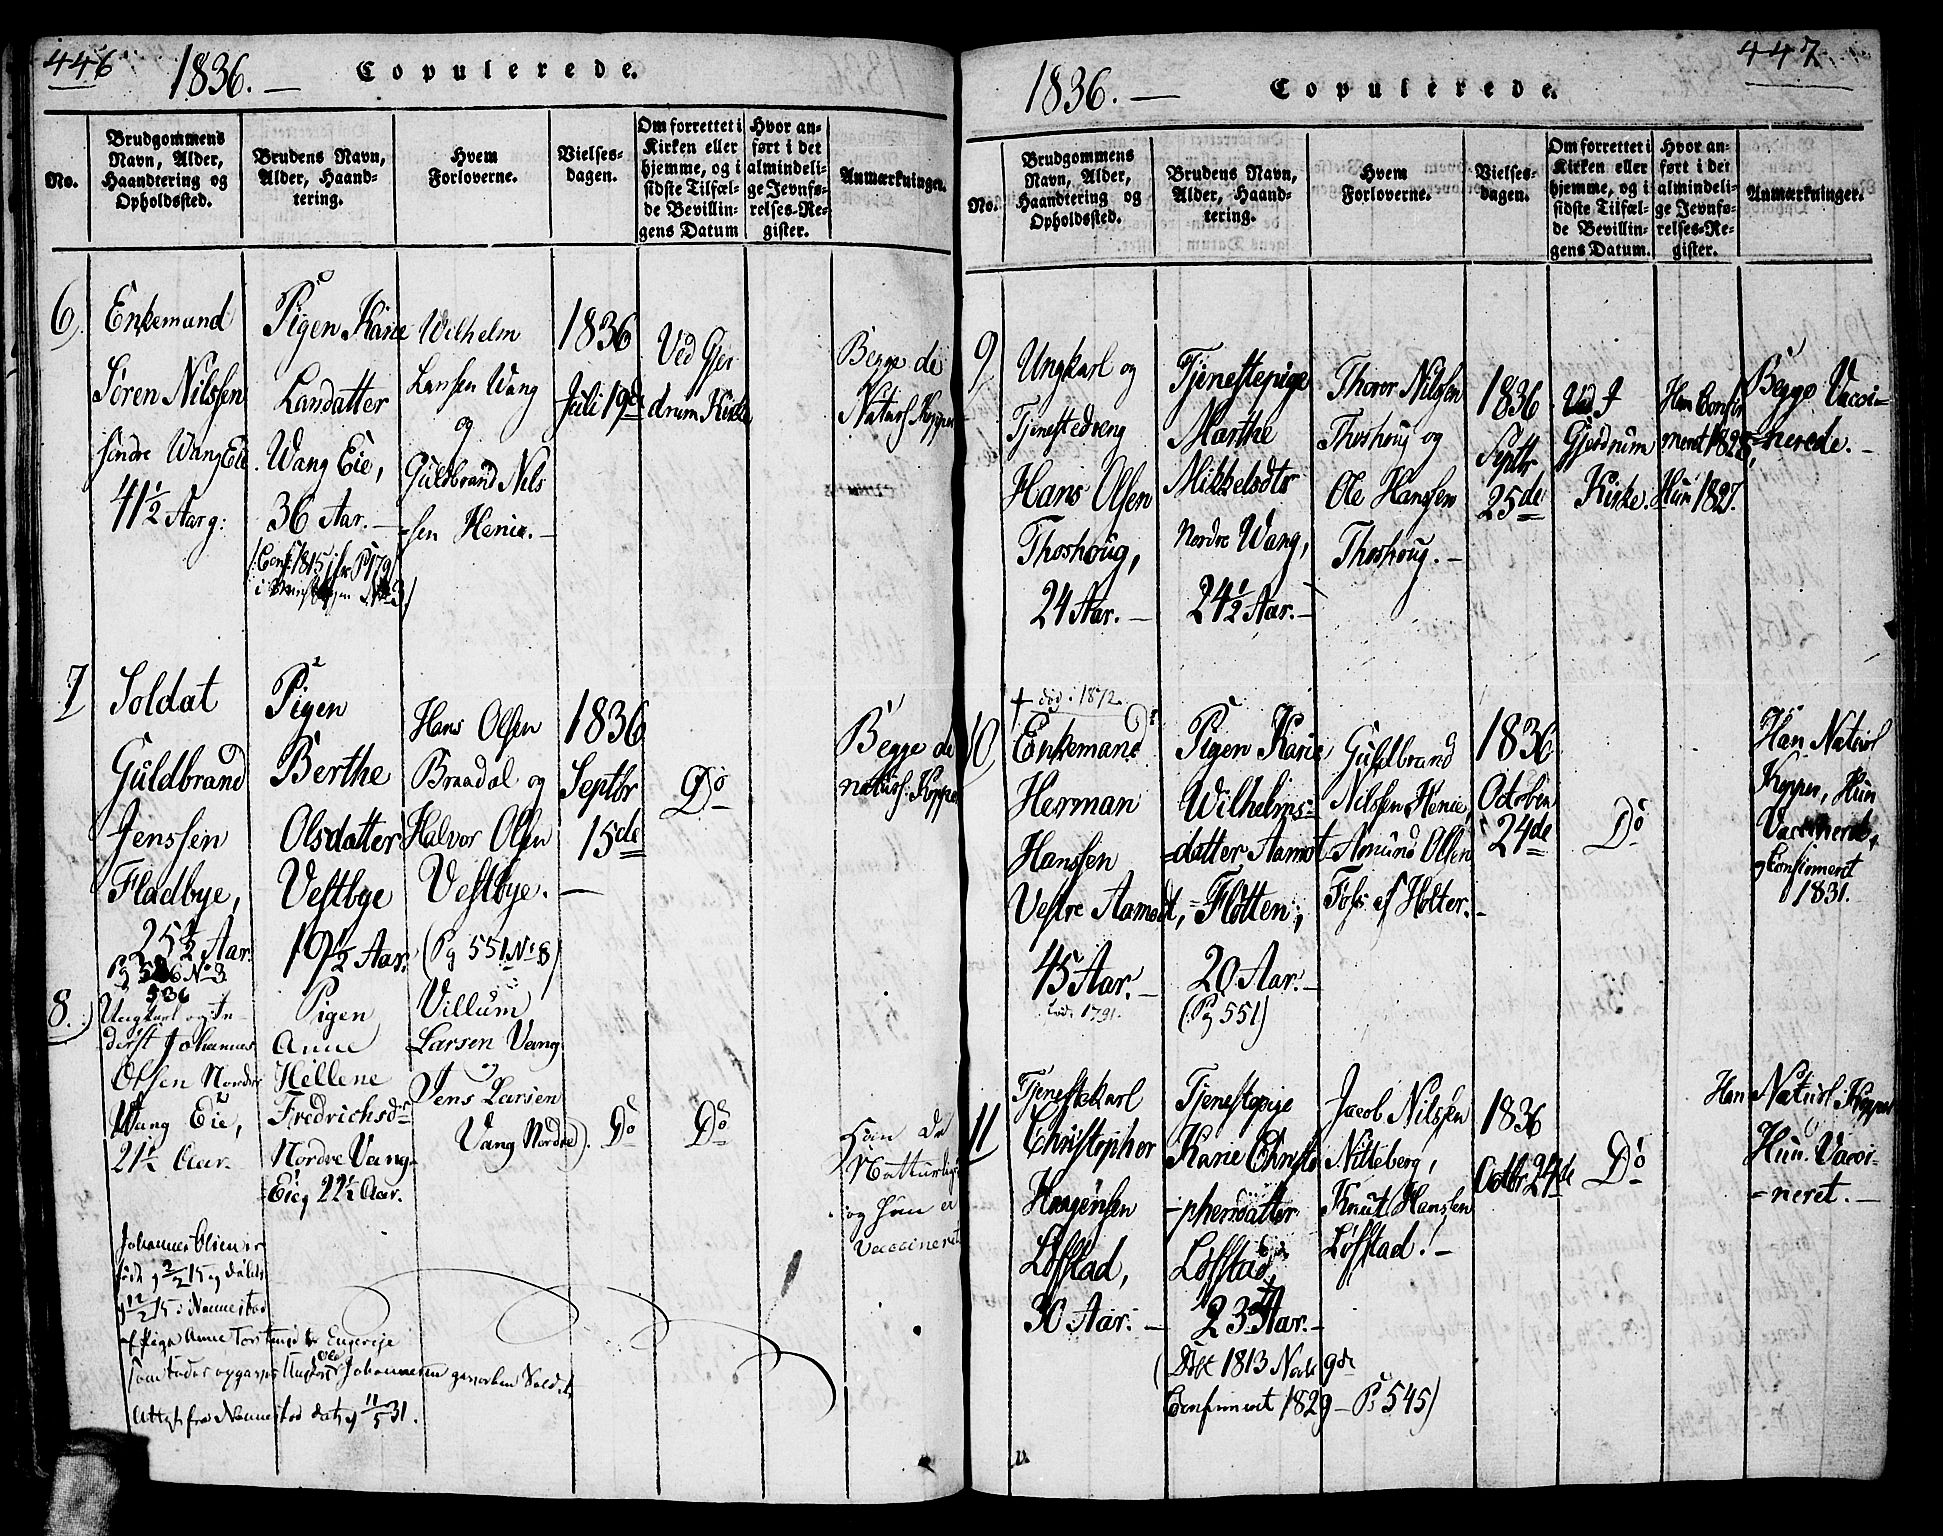 446
1836. —
Copulerede.
No.
Brudgommens
Navn, Alder,
Haandtering og
Opholdssted.
Brudens Navn,
Alder, Haand-
tering.
Hvem
Forloverne.
Vielses-
dagen.
Om forrettet i
Kirken eller
hjemme, og i
sidste Tilfæl-
de Bevillin-
gens Datum
Hvor an-
ført i det
almindeli-
ge Jevnfø-
relses-Re-
gister.
Anmærkninger.
6)
Enkemand
Søren Nilssen
søndre Wang Eie
41½ Aar g:
Pigen Karie
Larsdatter
Wang Eie,
36 Aar. —
(Conf. 1815
Wilhelm
Larssen Wang
og
Guldbrand Nils
=sen Henie. —
1836
Juli 19de
Ved Gjer
drum Kirke
Begge de
Naturl. Kopper
7
Soldat
Guldbrand
Jenssen
Fladbye,
25½ Aar.
No 3
536
Pigen
Berthe
Olsdatter
Vestbye
19½ Aar.
Hans Olsen
Braadal og
Halvor Olsen
Vestbye. —
(Pg 551 No 8)
1836
Septbr
15de
Do
Begge de
naturl: Kopper
8.)
Ungkarl og In-
derst Johannes
Olsen Nordre
Wang Eie,
21½ Aar.
Pigen
Anne
Hellene
Fredrichsdr
Nordre Vang-
=Eie, 22½ Aar.
Villum
Larsen Vang
og
Jens Larsen
Vang Nordre).
Do
Do
Han de
Natturlige
og Hun er
Vaccineret
Johannes Olsen er
født 2/2 15 og døbt
12/2 15 i Nannestad
af Pige Anne
som Fader opgaves Ungkarl Ole Johannesen Soldat
Attest fra Nannestad dat. 11/5 31.
447
1836. —
Copulerede.
No.
Brudgommens
Navn, Alder,
Haandtering og
Opholdssted.
Brudens Navn,
Alder, Haand-
tering.
Hvem
Forloverne.
Vielses-
dagen.
Om forrettet i
Kirken eller
hjemme, og i
sidste Tilfæl-
de Bevillin-
gens Datum.
Hvor an-
ført i det
almindeli-
ge Jevnfø-
relses-Re-
gister.
Anmærkninger.
9
Ungkarl og
Tjenestedreng
Hans Olsen
Thoshoug,
24 Aar. —
Tjenestepige
Marthe
Mikkelsdtr
Nordre Wang,
24½ Aar. —
Thorer Nilssen
Thoshoug og
Ole Hanssen
Thoshoug. —
1836
Septbr
25de
Ved
Gjerdrum
Kirke.
Han Confir
meret 1828,
Hun 1827.
Begge Vacci-
=nerede. —
10
† død i 1872.
Enkemand
Herman
Hanssen
Vestre Aamodt,
45 Aar. —
1791.
Pigen Karie
Wilhelms=
=datter Aamot
=Fløtten,
20 Aar. —
(Pg 551)
Guldbrand
Nilssen Henie,
Amund Olsen
Holter. —
1836
October
24de
Do
Han Naturl
Kopper, Hun
Vaccineret,
og Confirmeret
1831.
11
Tjenestekarl
Christopher
Løfstad,
30 Aar. —
Tjenestepige
Karie Christo
=phersdatter
Løfstad,
23 Aar. —
(Født 1813 9de
Confirmeret 1829 — Pg 545)
Jacob Nilssen
Nitteberg,
Knut Hanssen
Løfstad. —
1836
Octbr 24de
Do
Han Naturl. Kopper
Hun Vacci-
=neret. —